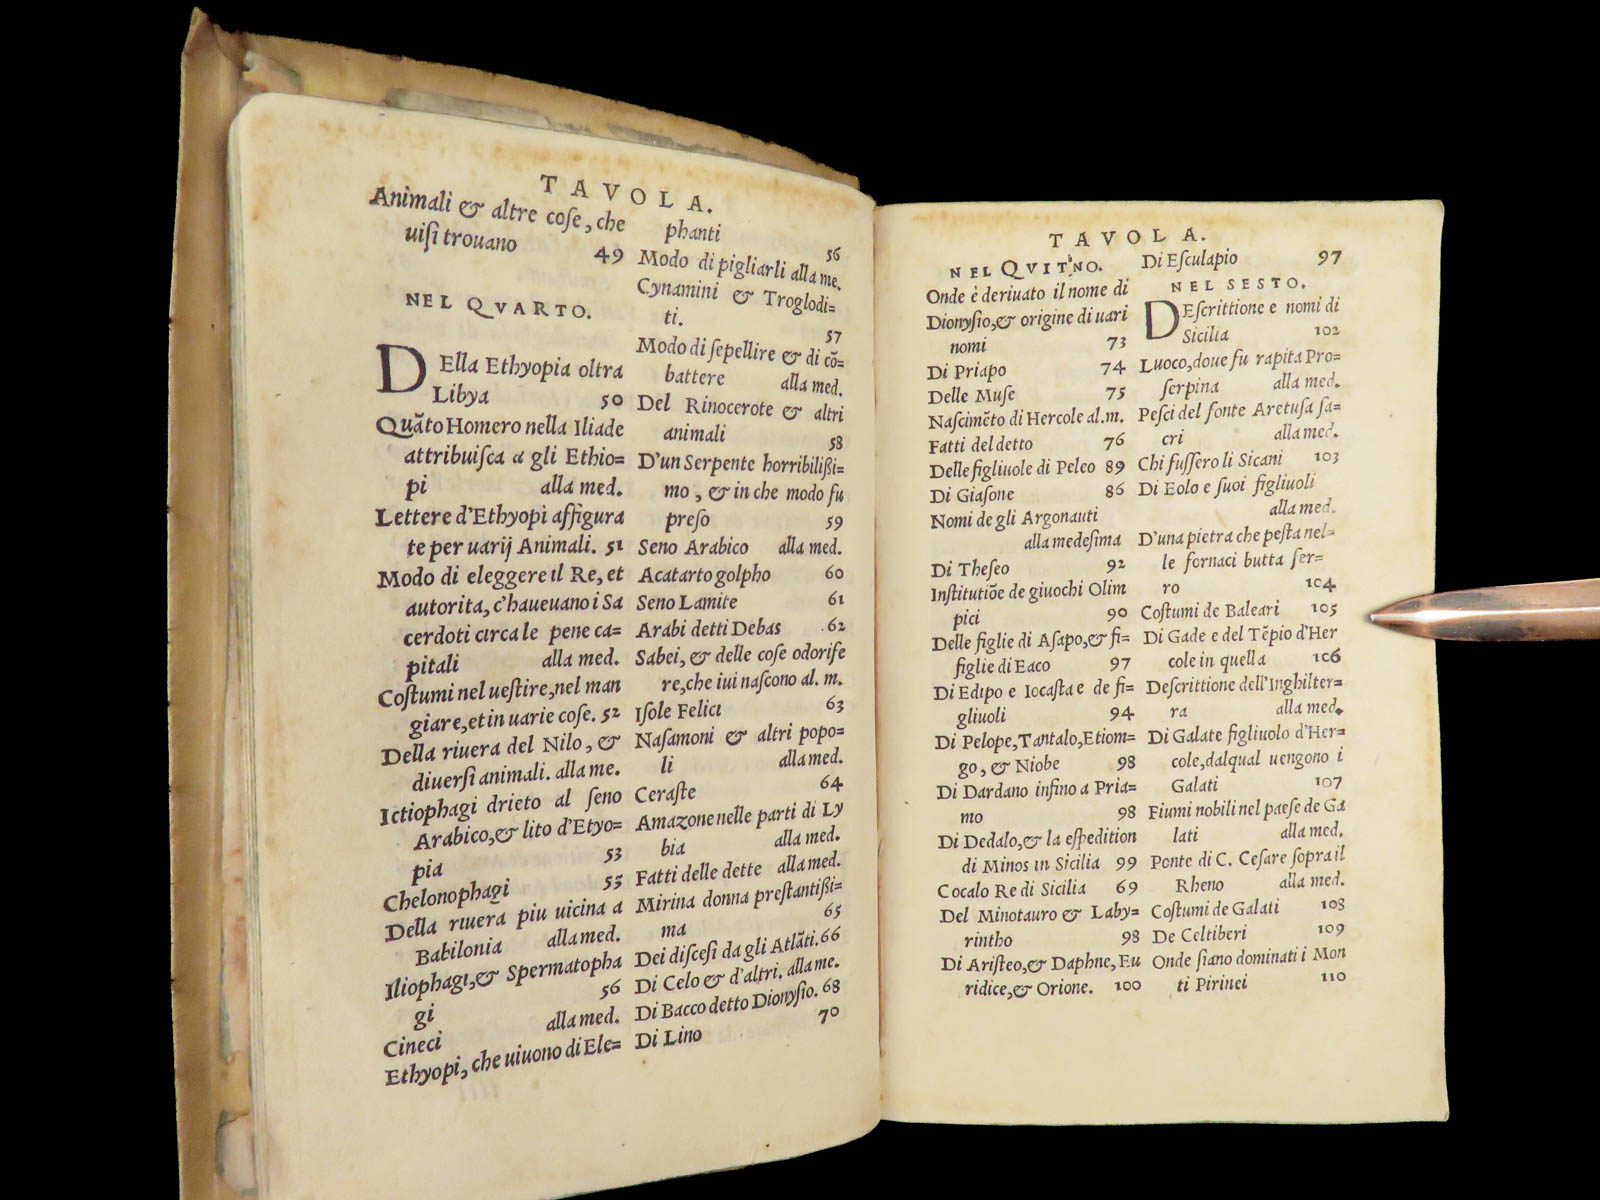 TAVOLA.
Animali & altre coſe, che
uiſi trouano 49
NEL QVARTO.
DElla Ethyopia oltra
Libya 50
Quãto Homero nella Iliade
attribuiſca a gli Ethio=
pi alla med.
Lettere d'Ethyopi affigura
te per uarij Animali. 51
Modo di eleggere il Re, et
autorita, c'haueuano i Sa
cerdoti circa le pene ca=
pitali alla med.
Coſtumi nel ueſtire,nel man
giare,et in uarie coſe. 52
Della riuera del Nilo, &
diuerſi animali. alla me.
Ictiophagi drieto al ſeno
Arabico,& lito d'Etyo=
pia 53
Chelonophagi 55
Della riuera piu uicina a
Babilonia alla med.
Iliophagi,& Spermatopha
gi 56
Cineci alla med.
Ethyopi, che uiuono di Ele=
phanti 56
Modo di pigliarli alla me.
Cynamini & Troglodi=
ti. 57
Modo di ſepellire & di cõ=
battere alla med.
Del Rinocerote & altri
animali 58
D'un Serpente horribilißi=
mo , & in che modo fu
preſo 59
Seno Arabico alla med.
Acatarto golpho 60
Seno Lamite 61
Arabi detti Debas .62
Sabei, & delle coſe odorife
re,che iui naſcono al. m.
Iſole Felici 63
Naſamoni & altri popo=
li alla med.
Ceraſte 64
Amazone nelle parti di Ly
bia alla med.
Fatti delle dette alla med.
Mirina donna preſtantißi=
ma 65
Dei diſceſi da gli Atlãti.66
Di Celo & d'altri. alla me.
Di Bacco detto Dionyſio. 68
Di Lino 70
TAVOLA.
NEL QVITNO.
Onde è deriuato il nome di
Dionyſio,& origine di uari
nomi 73
Di Priapo 74
Delle Muſe 75
Naſcimẽto di Hercole al.m.
Fatti del detto 76
Delle figliuole di Peleo 89
Di Giaſone 86
Nomi de gli Argonauti
alla medeſima
Di Theſeo 92
Inſtitutiõe de giuochi Olim
pici 90
Delle figlie di Aſapo,& fi=
figlie di Eaco 97
Di Edipo e Iocaſta e de fi=
gliuoli 94
Di Pelope,Tantalo,Etiom=
go, & Niobe 98
Di Dardano infino a Pria=
mo 98
Di Dedalo,& la eſpedition
di Minos in Sicilia 99
Cocalo Re di Sicilia 69
Del Minotauro & Laby=
rintho 98
Di Ariſteo,& Daphne, Eu
ridice,& Orione. 100
Di Eſculapio 97
NEL SESTO.
DEſcrittione e nomi di
Sicilia 102
Luoco,doue fu rapita Pro=
ſerpina alla med.
Peſci del fonte Aretuſa ſa=
cri alla med.
Chi fuſſero li Sicani 103
Di Eolo e ſuoi figliuoli
alla med.
D'una pietra che peſta nel=
le fornaci butta fer=
ro 104
Coſtumi de Baleari 105
Di Gade e del Tẽpio d'Her
cole in quella 106
Deſcrittione dell'Inghilter=
ra alla med.
Di Galate figliuolo d'Her=
cole,dalqual uengono i
Galati 107
Fiumi nobili nel paeſe de Ga
lati alla med.
Ponte di C. Ceſare ſopra il
Rheno alla med.
Coſtumi de Galati 108
De Celtiberi 109
Onde ſiano dominati i Mon
ti Pirinei 110